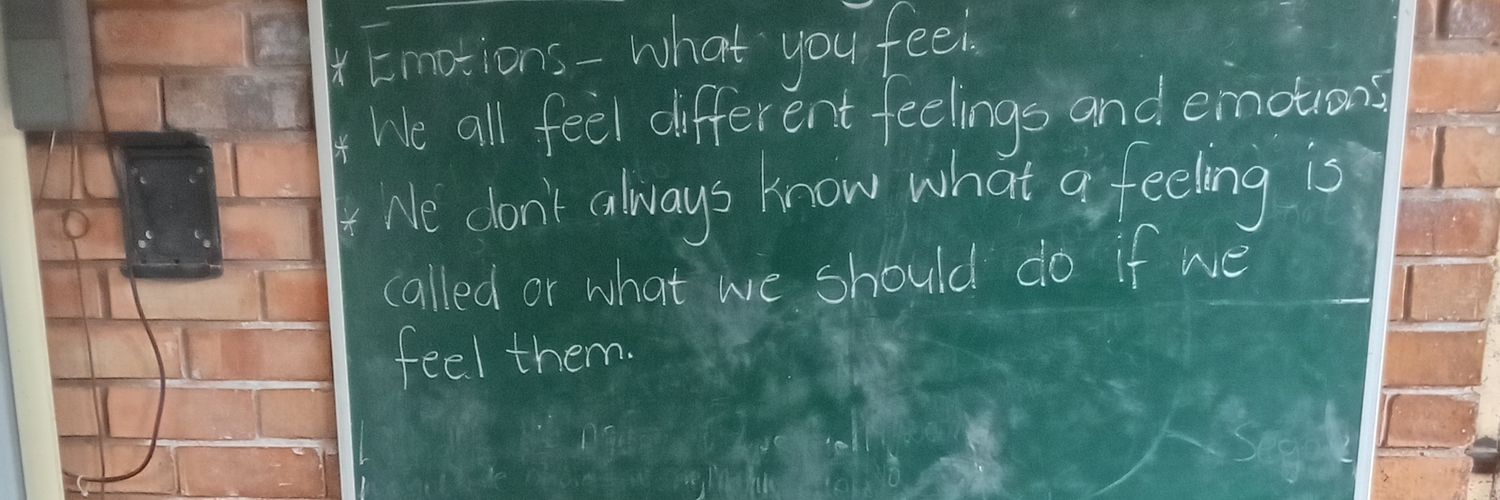 * Emotions - what you feel.
* We all feel different feelings and emotions.
* We don't always know what a feeling is
called or what we should do if we
feel them.